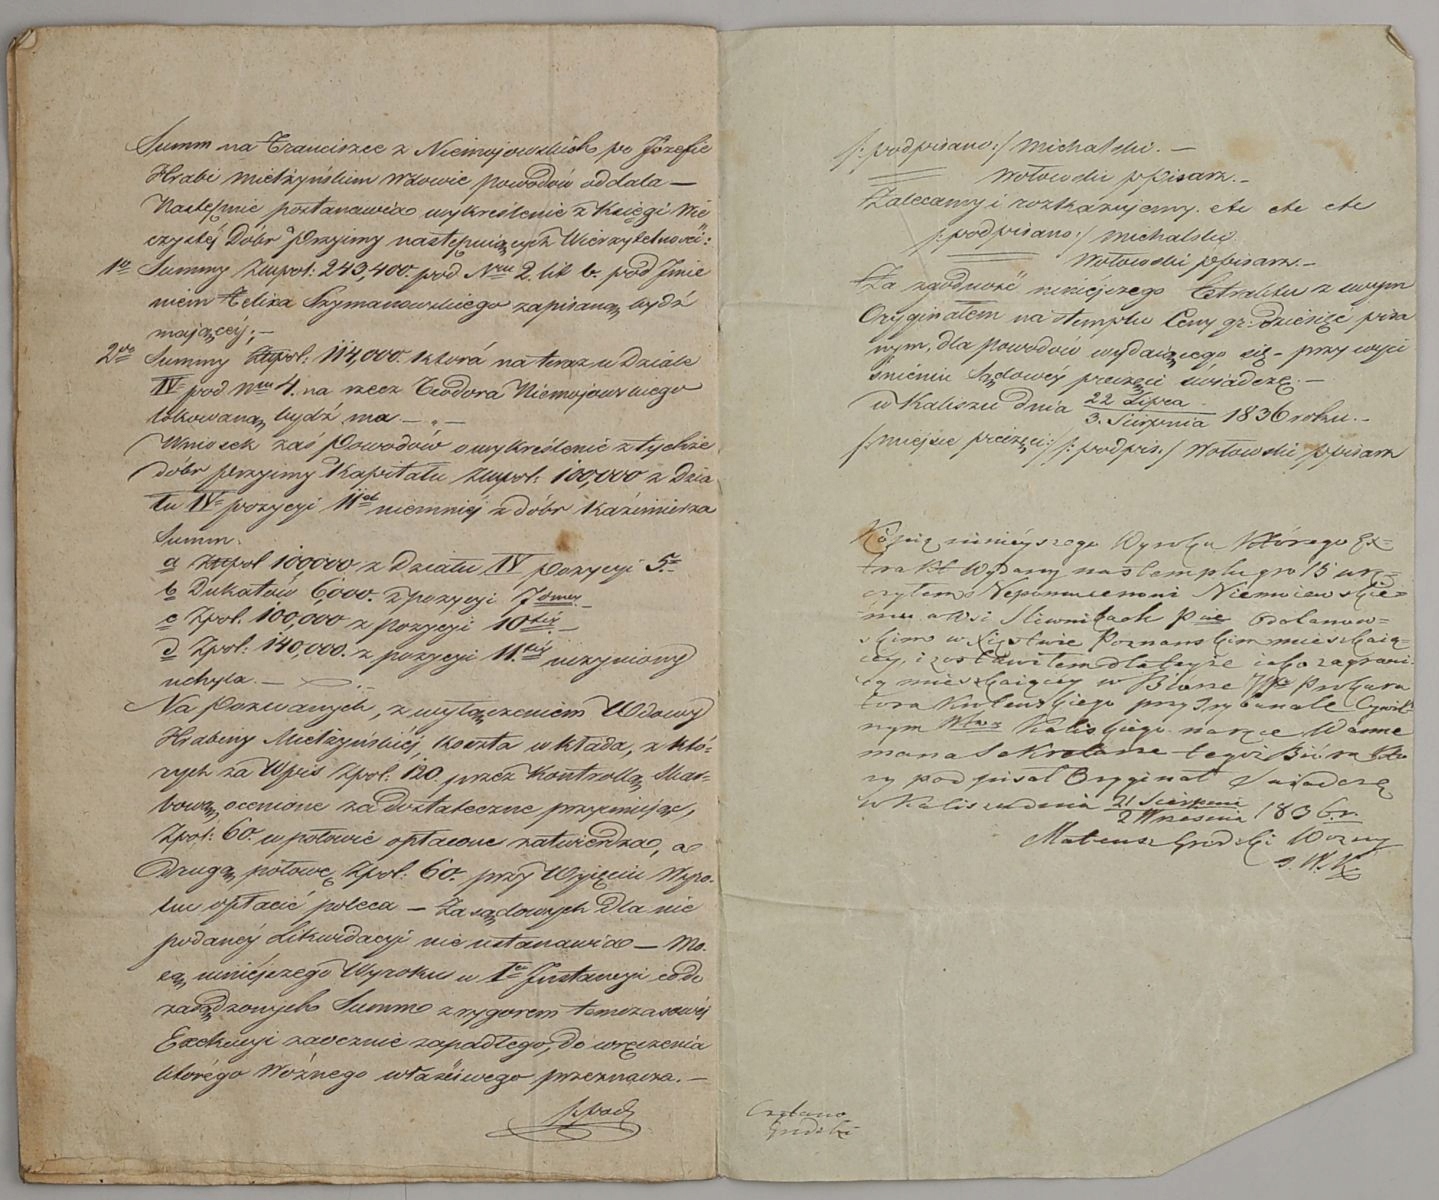 Summ na Franciszce z Niemojowskich po Józefie
Hrabi Mielżyńskim Wdowie powodów oddala —
Następnie postanawia wykreślenie z Księgi Wie
czystéj Dóbr Przyimy następuiących Wierzytelności:
1o Summy Złwpol: 243,400. pod Nrm 2. lit b. pod Jmie
niem Felixa Szymanowskiego zapisaną bydź
maiącéj; —
2do Summy Złwpol: 114,000. która na teraz w Dziale
IV pod Nrm 4. na rzecz Teodora Niemojowskiego
lokowaną bydź ma. — „ —
Wniosek zaś Powodów o wykreślenie z tychże
dobr Przyimy Kapitału Złwpol: 100,000 z Dzia
łu IV pozycyi 11 niemniéj z dóbr Kaźmierza
Summ:
a Złwpol 100,000 z Działu IV Pozycyi 5.
b Dukatów 6,000. z pozycyi 7
c Złpol. 100,000 z pozycyi 10
d Złpol: 140,000. z pozycyi 11. uczyniony
uchyla. —
Na Pozwanych, z wyłączeniem Wdowy
Hrabiny Mielżyńskiéj, koszta wkłada, z któ-
rych za Wpis Złpol. 120 przez Kontrollą Skar-
bową ocenione za dostateczne przyimuiąc,
Złpol: 60. w połowie opłacone zatwierdza, a
drugą połowę Złpol: 60. przy Wyięciu Wyro-
ku opłacić poleca — Zasądowych dla nie
podanéj Likwidacyi nie ustanawia — Mo-
cą niniéjszego Wyroku w 1 Jnstancyi co do
zasądzonych Summ z rygorem tymczasowéj
Exekucyi zaocznie zapadłego, do wręczenia
którego Woźnego właściwego przeznacza. —
/: podpisano :/ Michalski. —
Wołowski pPisarz. —
Zalecamy i rozkazujemy. etc etc etc
/: podpisano :/ Michalski.
Wołowski pPisarz. —
Za zgodność niniejszego Extraktu z swym
Oryginałem na stemplu Ceny gr: dziesięć pisa
nym, dla Powodów wydaiącego się — przy wyci
śnieniu Sądowéj pieczęci świadczę. —
w Kaliszu dnia 22 Lipca
3. Sierpnia 1836 roku. —
/: Miejsce pieczęci :/ /: podpis :/ Wołowski pPisarz
Kopię niniéyszego Wyroku którego Ex-
trakt Wydany na stemplu gro 15 wrę-
czyłem Nepomucenowi Niemoiewskie-
mu w Wsi Sliwnikach Pcie Odolanow-
skim w Xięstwie Poznanskim mieszkaią-
cey, i zostawiłem dla tegoż iako zagrani-
cą mieszkaiącey w Biorze Prokura
tora Królewskiego przy Trybunale Cywil-
nym Wtwa Kaliskiego na ręce Wanne
mana Sekretarza tegoż Biura któ
ry podpisał Oryginał Swiadczę
w Kaliszu dnia 21 Sierpnia
2 Września 1836.r.
Mateusz Grodzki Wozny
Czytano
Grodzki